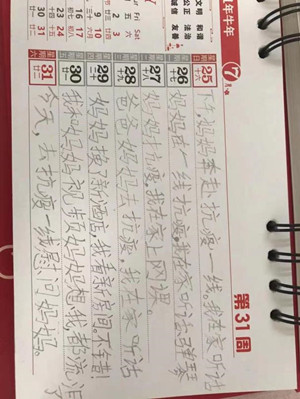 牛年
7月
第31周
文明 和谐
公正 法治
诚信 友善
Fri Sat
五 六
2 3
9 10
16 17
23 24
30 31
25 十六 下午,妈妈奔赴抗疫一线。我在家听话
26 十七 妈妈在一线抗疫。我在家听话弹琴
27 十八 妈妈抗疫,我在家上网课。
28 十九 爸爸妈妈去抗疫,我在家听话
29 二十 妈妈换了新酒店,我看了房间。不错!
30 廿一 我和妈妈视频,妈妈想我都流泪了
31 廿二 今天,去抗疫一线慰问妈妈。